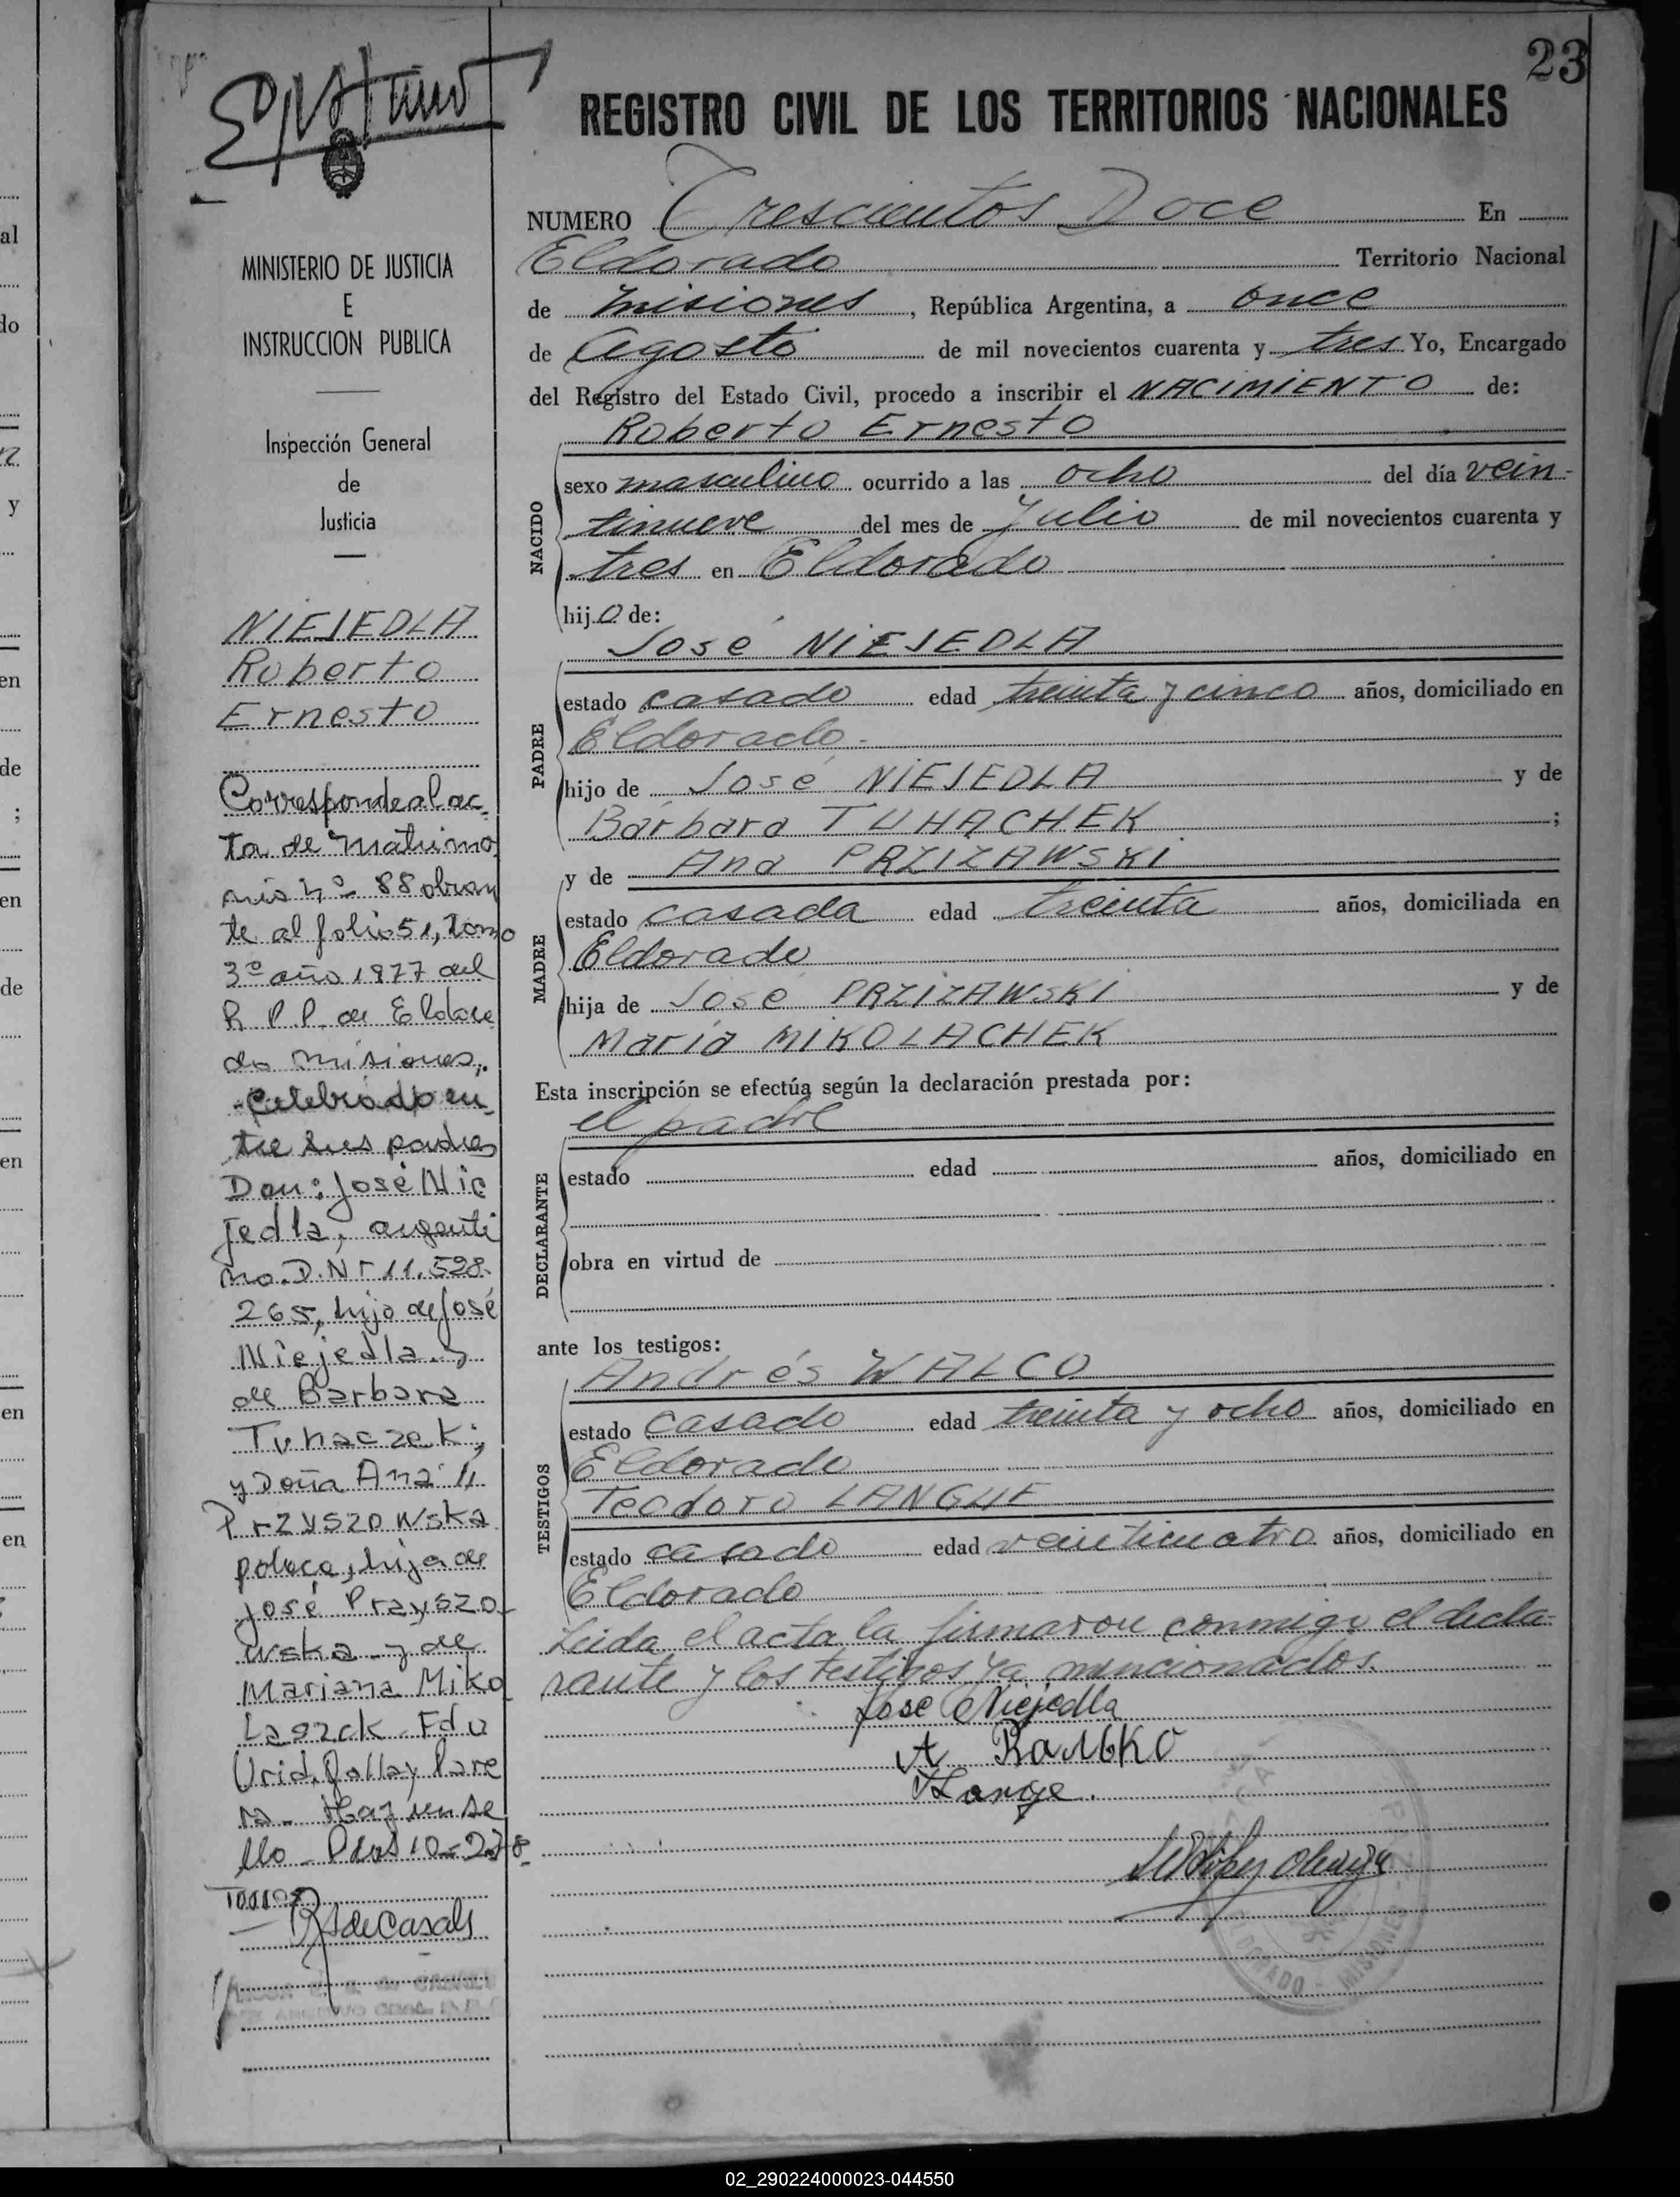 23
REGISTRO CIVIL DE LOS TERRITORIOS NACIONALES
NUMERO Trescientos Doce En
Eldorado Territorio Nacional
de Misiones, República Argentina, a once
de Agosto de mil novecientos cuarenta y tres Yo, Encargado
del Registro del Estado Civil, procedo a inscribir el NACIMIENTO de:
Roberto Ernesto
NACIDO
sexo masculino ocurrido a las ocho del día vein-
tinueve del mes de Julio de mil novecientos cuarenta y
tres en Eldorado
hijo de:
José NIEJEDLA
PADRE
estado casado edad treinta y cinco años, domiciliado en
Eldorado.-
hijo de José NIEJEDLA y de
Bárbara TUHACHEK ;
y de Ana PRZIZAWSKI
MADRE
estado casada edad treinta años, domiciliada en
Eldorado
hija de José PRZIZAWSKI y de
María MIKOLACHEK
Esta inscripción se efectúa según la declaración prestada por:
el padre
DECLARANTE
estado edad años, domiciliado en
obra en virtud de
ante los testigos:
Andrés WALCO
TESTIGOS
estado casado edad treinta y ocho años, domiciliado en
Eldorado
Teodoro LANGUE
estado casado edad veinticuatro años, domiciliado en
Eldorado
Leida el acta la firmaron conmigo el decla-
rante y los testigos ya mencionados.
Jose Niejedla
A Валько
Lange.
ELDORADO - MISIONES
MINISTERIO DE JUSTICIA
E
INSTRUCCION PUBLICA
Inspección General
de
Justicia
NIEJEDLA
Roberto
Ernesto
Corresponde al ac-
ta de Matrimo
nio Nº 88 obran
te al folio 51, tomo
3º año 1977 del
R P P. de Eldora
do Misiones,.
-Celebrado en
tre sus padres
Don: José Nie
jedla, argenti
no. D.N I 11.528.
265, hijo de José
Niejedla y
de Barbara
Tuhaczek;
y Doña Ana
Przyszowska
polaca, hija de
José Przyszo
wska y de
Mariana Miko
Laszck. Fdo
02_290224000023-044550